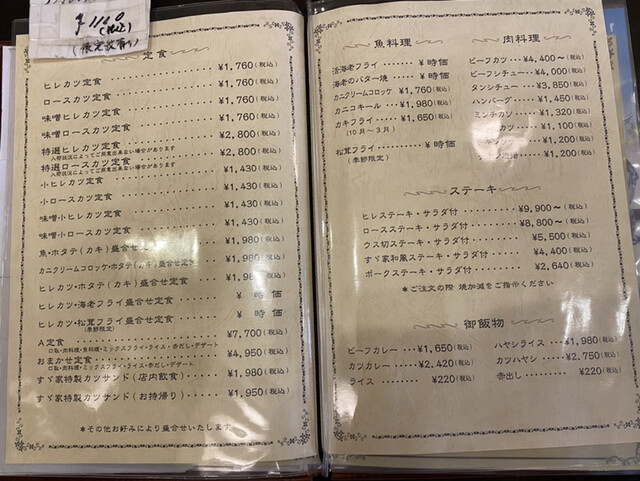 ¥1110(税込)
(限定数有り)
定食
ヒレカツ定食 ¥1,760(税込)
ロースカツ定食 ¥1,760(税込)
味噌ヒレカツ定食 ¥1,760(税込)
味噌ロースカツ定食 ¥1,760(税込)
特選ヒレカツ定食 ¥2,800(税込)
入荷状況によってご用意出来ない場合があります
特選ロースカツ定食 ¥2,800(税込)
入荷状況によってご用意出来ない場合があります
小ヒレカツ定食 ¥1,430(税込)
小ロースカツ定食 ¥1,430(税込)
味噌小ヒレカツ定食 ¥1,430(税込)
味噌小ロースカツ定食 ¥1,430(税込)
魚・ホタテ(カキ)盛合せ定食 ¥1,980(税込)
カニクリームコロッケ・ホタテ(カキ)盛合せ定食 ¥1,980(税込)
ヒレカツ・ホタテ(カキ)盛合せ定食 ¥1,980(税込)
ヒレカツ・海老フライ盛合せ定食 ¥ 時価
ヒレカツ・松茸フライ盛合せ定食 ¥ 時価
(季節限定)
A定食 ¥7,700(税込)
口取・肉料理・魚料理・ミックスフライ・ライス・赤だし・デザート
おまかせ定食 ¥4,950(税込)
口取・肉料理・ミックスフライ・ライス・赤だし・デザート
すゞ家特製カツサンド(店内飲食) ¥1,980(税込)
すゞ家特製カツサンド(お持帰り) ¥1,950(税込)
*その他お好みにより盛合せいたします
魚料理
活海老フライ ¥ 時価
海老のバター焼 ¥ 時価
カニクリームコロッケ ¥1,760(税込)
カニコキール ¥1,980(税込)
カキフライ ¥1,650(税込)
(10月〜3月)
松茸フライ ¥ 時価
(季節限定)
肉料理
ビーフカツ ¥4,400〜(税込)
ビーフシチュー ¥4,000(税込)
タンシチュー ¥3,850(税込)
ハンバーグ ¥1,450(税込)
ミンチカツ ¥1,320(税込)
カツ ¥1,100(税込)
¥1,200(税込)
¥1,200(税込)
ステーキ
ヒレステーキ・サラダ付 ¥9,900〜(税込)
ロースステーキ・サラダ付 ¥8,800〜(税込)
ウス切ステーキ・サラダ付 ¥5,500(税込)
すゞ家和風ステーキ・サラダ付 ¥4,400(税込)
ポークステーキ・サラダ付 ¥2,640(税込)
*ご注文の際 焼加減をご指示ください
御飯物
ビーフカレー ¥1,650(税込)
カツカレー ¥2,420(税込)
ライス ¥220(税込)
ハヤシライス ¥1,980(税込)
カツハヤシ ¥2,750(税込)
赤出し ¥220(税込)